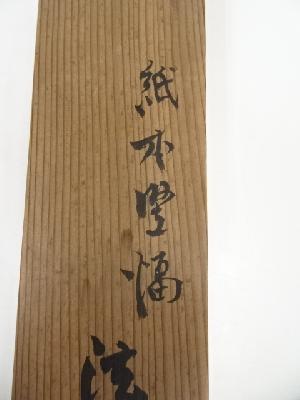 紙本竪幅
法